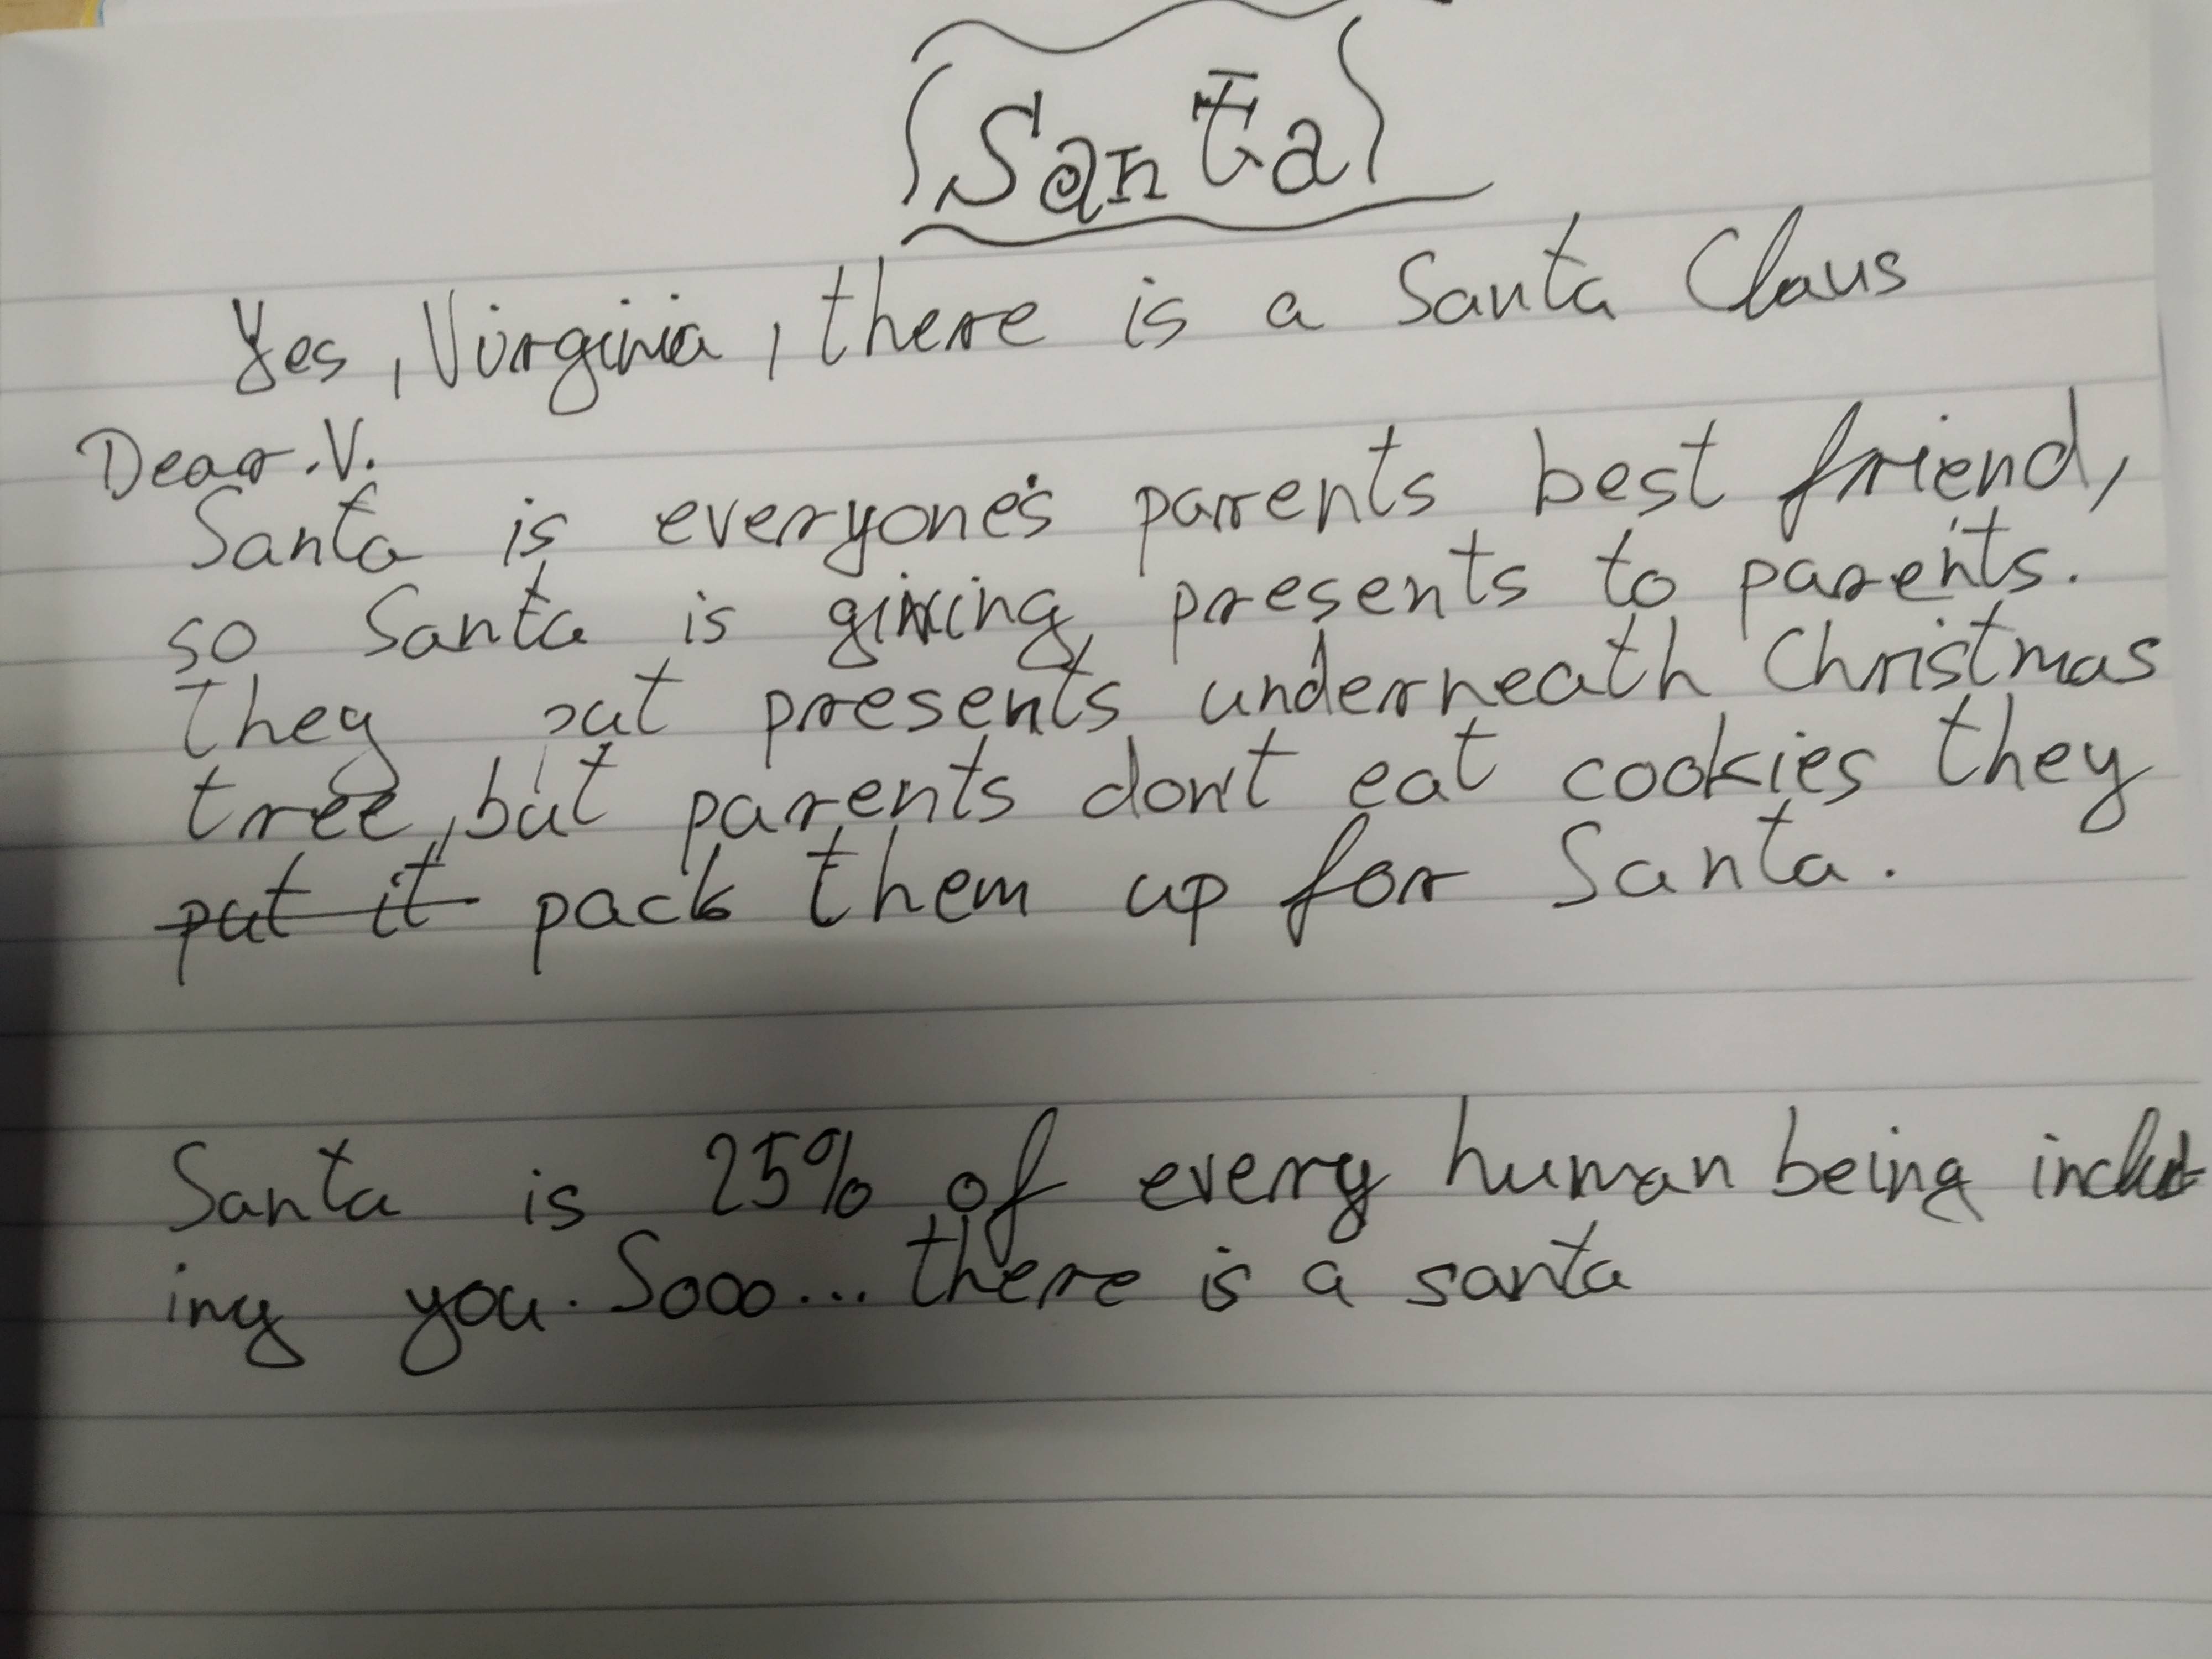 Santa
Yes, Virginia, there is a Santa Claus
Dear. V.
Santa is everyone's parents best friend,
so Santa is giving presents to parents.
They put presents underneath Christmas
tree, but parents don't eat cookies they
put it pack them up for Santa.
Santa is 25% of every human being includ-
ing you. Sooo... there is a santa